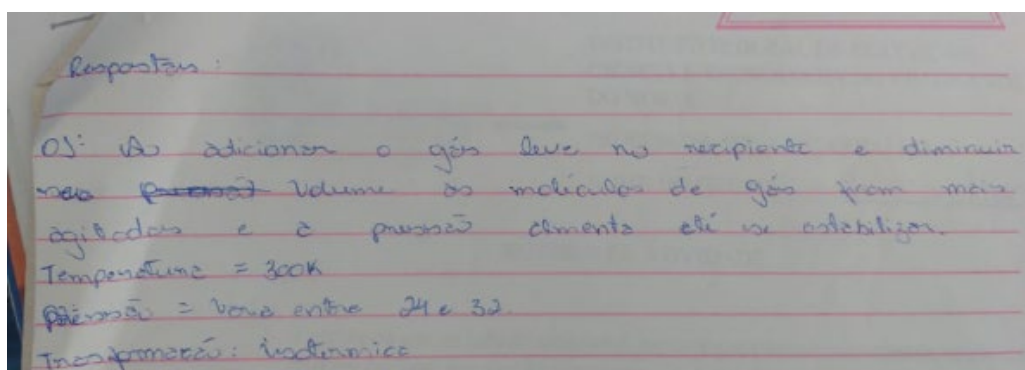 Respostas:
01: Ao adicionar o gás leve no recipiente e diminuir
seu volume as moléculas de gás ficam mais
agitadas e a pressão almenta até se estabilizar.
Temperatura = 300K
Pressão = Varia entre 24 e 32.
Trasformação: isotermica